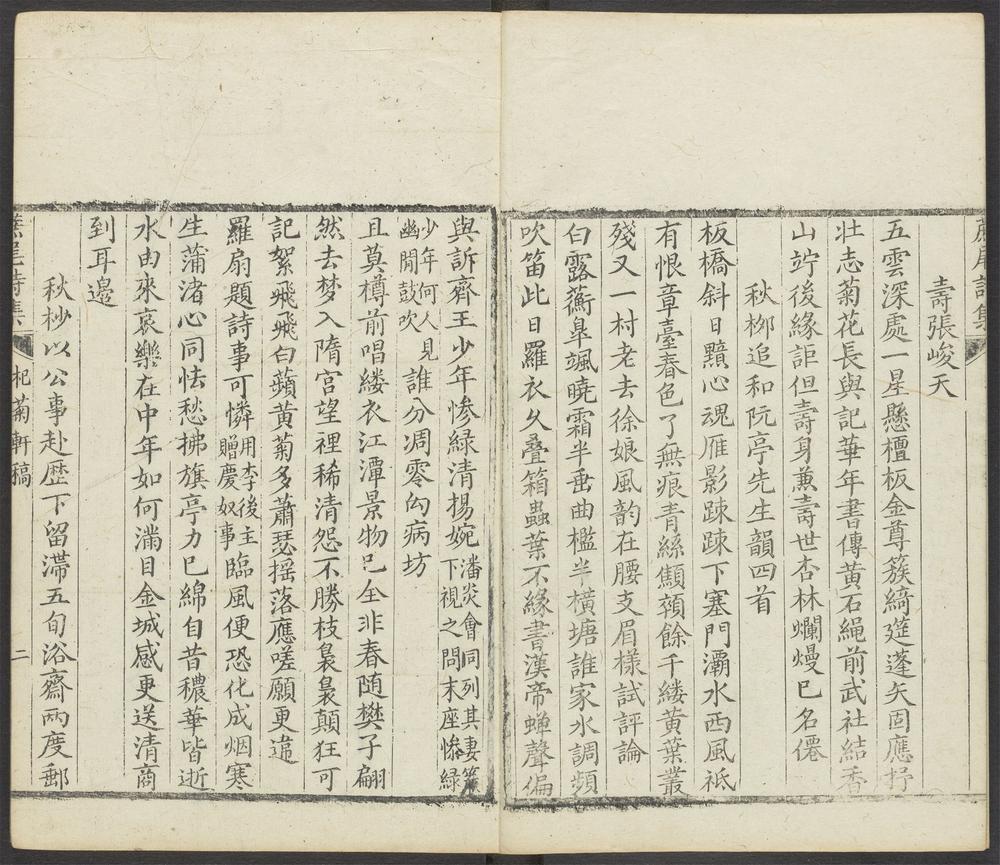 壽張峻天
五雲深處一星懸檀板金尊簇綺筵蓬矢固應抒
壯志菊花長與記華年書傳黃石繩前武社結香
山竚後緣詎但壽身兼壽世杏林爛熳已名僊
秋柳追和阮亭先生韻四首
板橋斜日黯心魂雁影踈踈下塞門灞水西風祗
有恨章臺春色了無痕青絲顦顇餘千縷黃葉叢
殘又一村老去徐娘風韵在腰支眉樣試評論
白露蘅皐颯曉霜半垂曲檻半橫塘誰家水調頻
吹笛此日羅衣久叠箱蟲葉不緣書漢帝蟬聲偏
與訴齊王少年慘綠清揚婉潘炎會同列其妻簾下視之問末座慘綠
少年何人見幽閒鼓吹誰分凋零勾病坊
且莫樽前唱縷衣江潭景物已全非春随樊子翩
然去梦入隋宫望裡稀清怨不勝枝裊裊顛狂可
記絮飛飛白蘋黃菊多蕭瑟揺落應嗟願更違
羅扇題詩事可憐用李後主贈慶奴事臨風便恐化成烟寒
生蒲渚心同怯愁拂旗亭力已綿自昔穠華皆逝
水由來哀樂在中年如何滿目金城感更送清商
到耳邊
秋杪以公事赴歴下留滯五旬浴齋兩度郵
杞菊軒稿
二